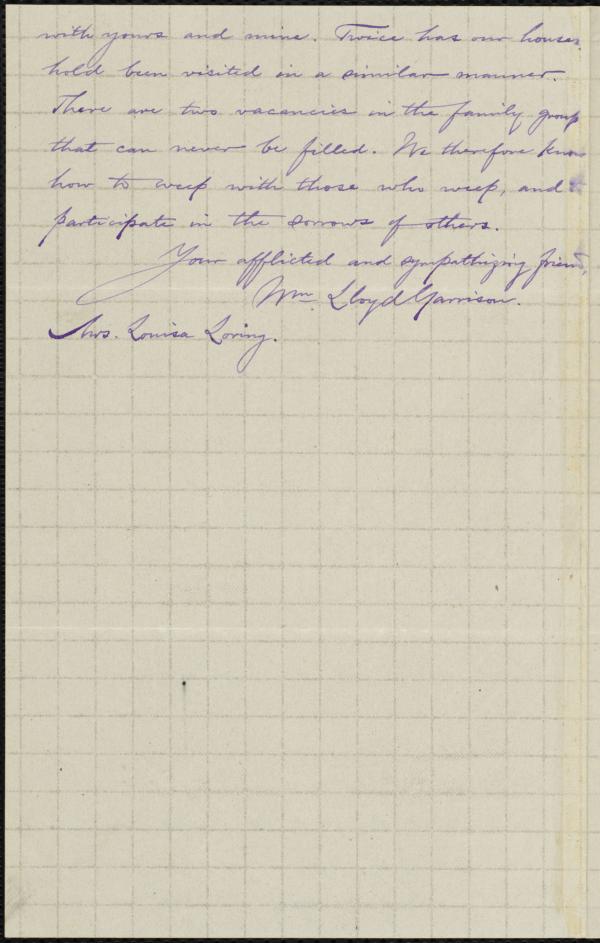 with yours and mine. Twice has our house-
hold been visited in a similar manner.
There are two vacancies in the family group
that can never be filled. We therefore know
how to weep with those who weep, and
participate in the sorrows of others.
Your afflicted and sympathizing friend,
Wm. Lloyd Garrison.
Mrs. Louisa Loring.